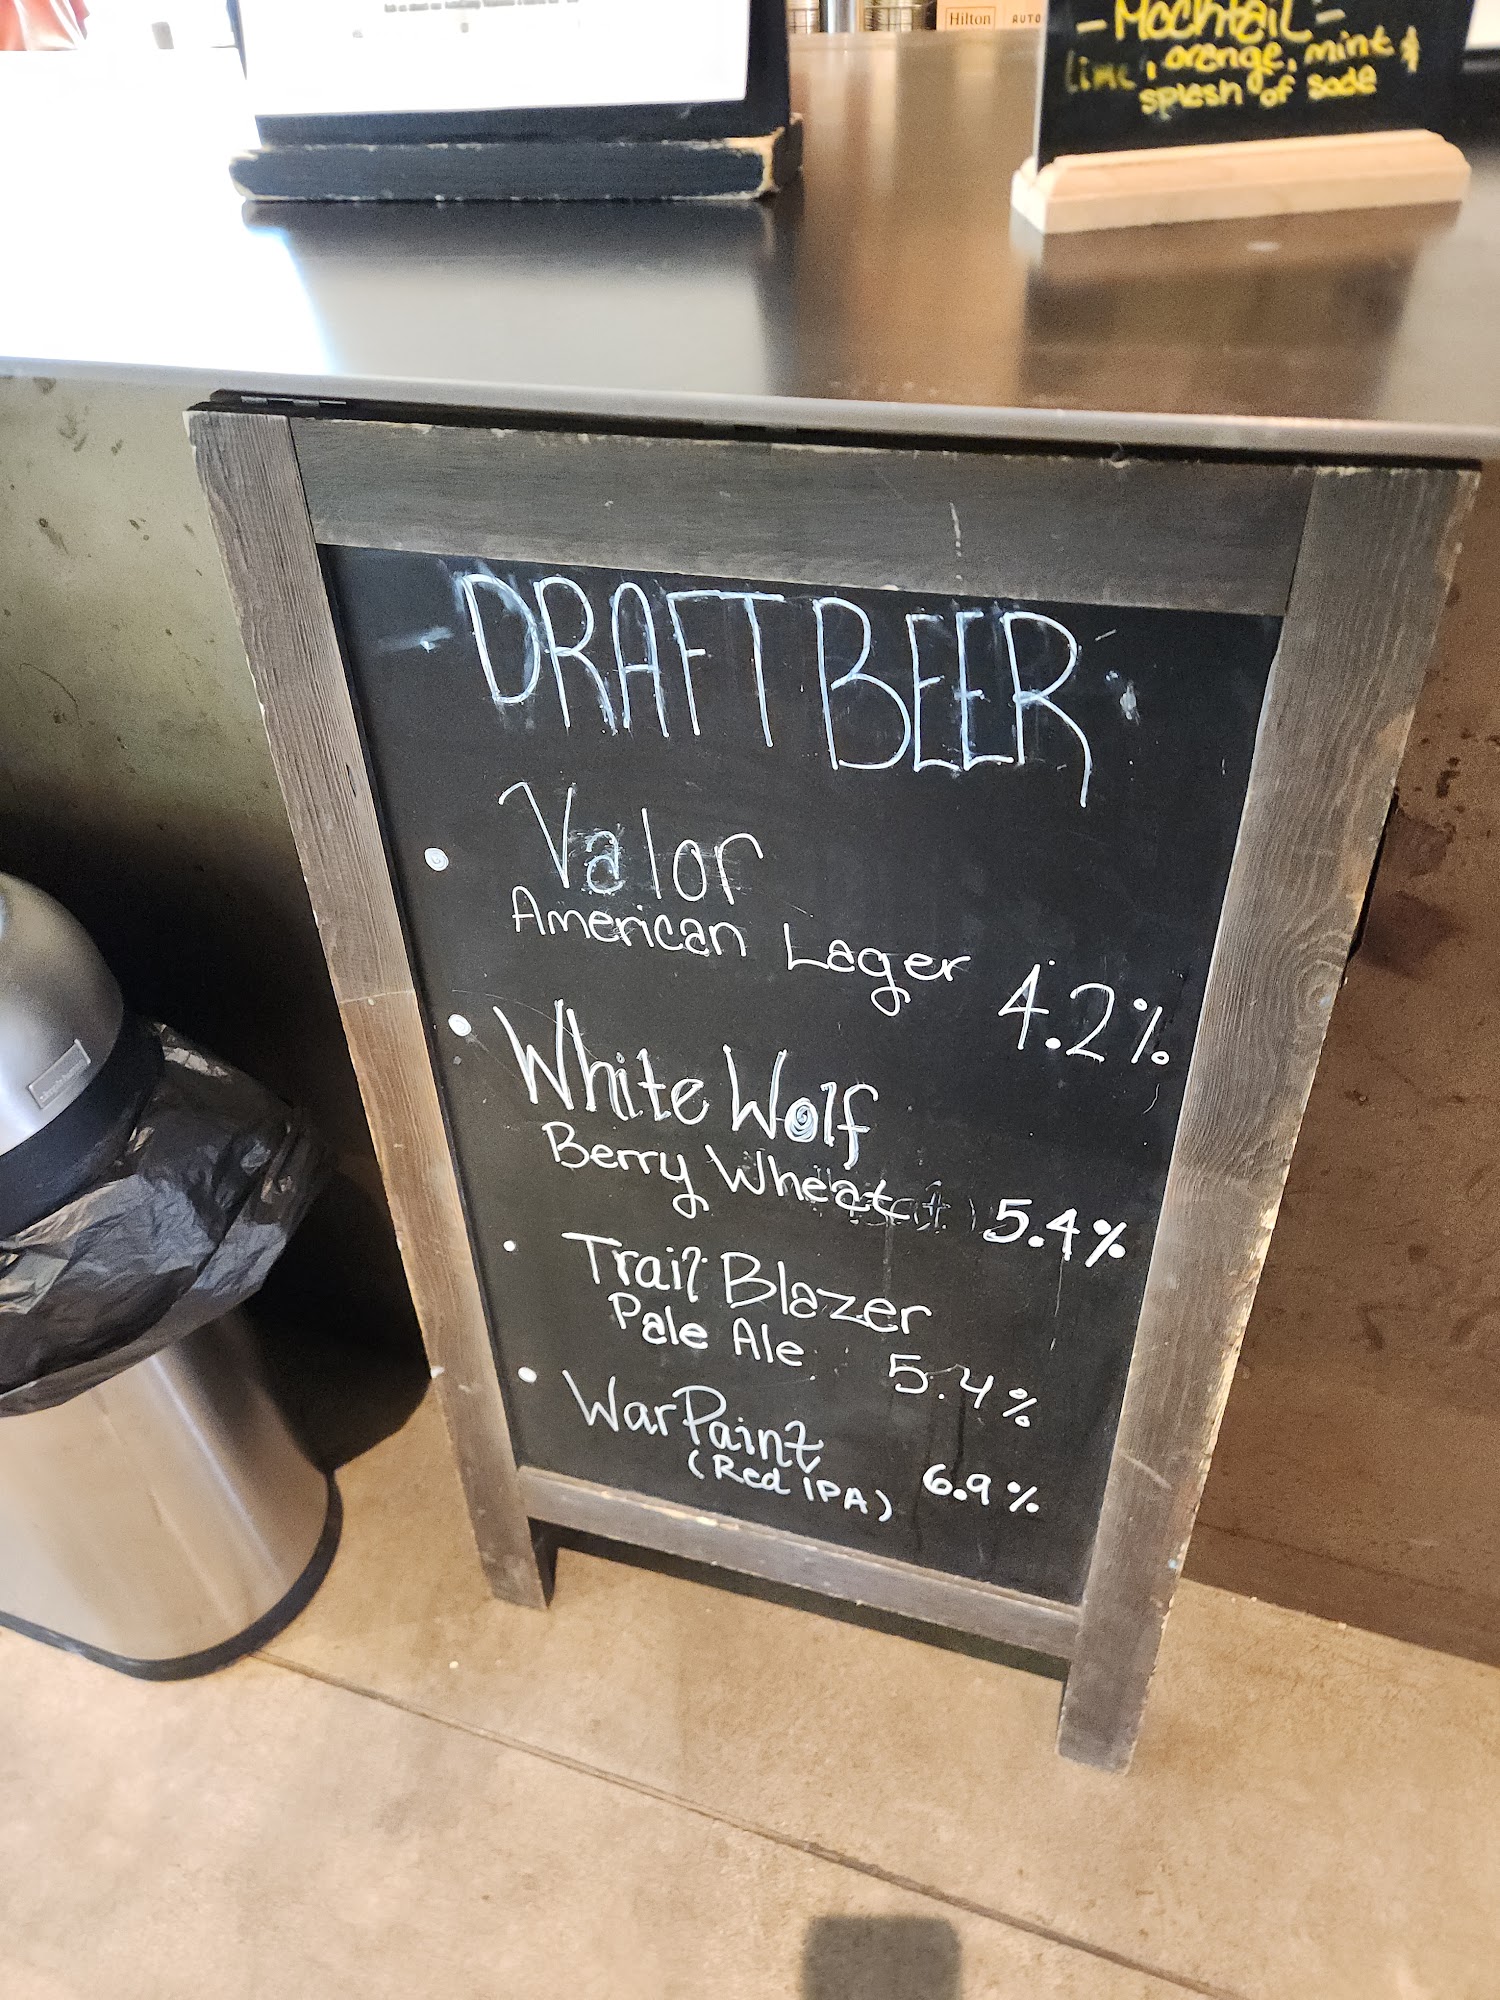 Hilton
AUTO
- Mocktail -
lime, orange, mint &
splesh of sode
DRAFT BEER
Valor
American Lager 4.2%
White Wolf
Berry Wheat 5.4%
Trail Blazer
Pale Ale 5.4%
War Paint
(Red IPA) 6.9%